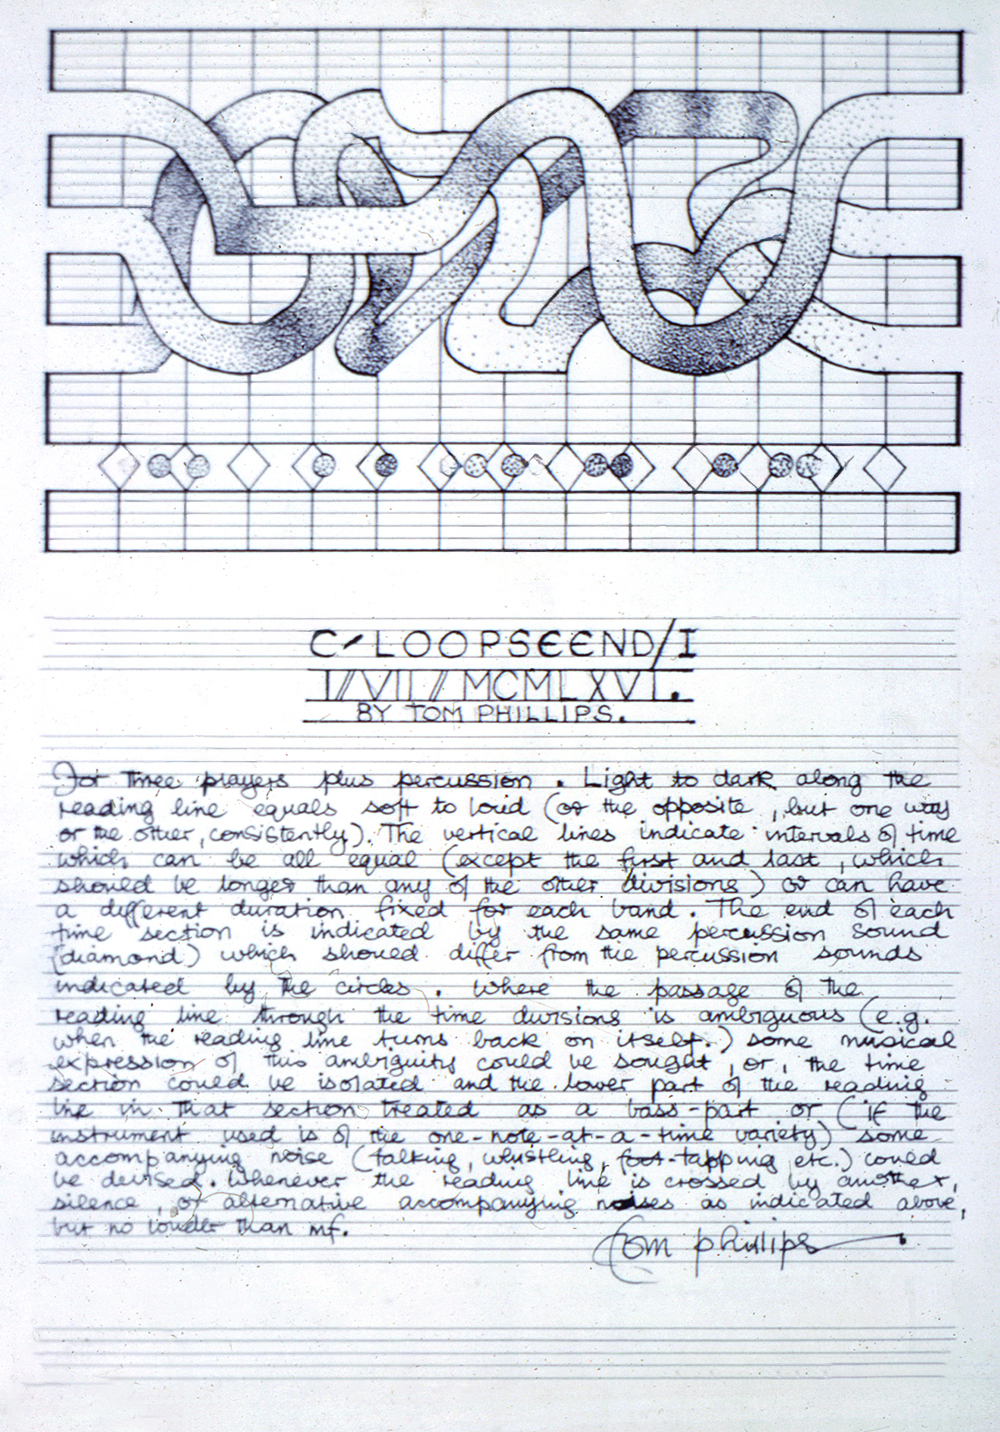 C-LOOPSEEND/I
I/VII/MCMLXVI.
BY TOM PHILLIPS.
For three players plus percussion. Light to dark along the
reading line equals soft to loud (or the opposite, but one way
or the other, consistently). The vertical lines indicate intervals of time
which can be all equal (except the first and last, which
should be longer than any of the other divisions) or can have
a different duration fixed for each band. The end of each
time section is indicated by the same percussion sound
(diamond) which should differ from the percussion sounds
indicated by the circles. Where the passage of the
reading line through the time divisions is ambiguous (e.g.
when the reading line turns back on itself.) some musical
expression of this ambiguity could be sought, or, the time
section could be isolated and the lower part of the reading
line in that section treated as a bass-part or (if the
instrument used is of the one-note-at-a-time variety) some
accompanying noise (talking, whistling, foot-tapping etc.) could
be devised. Whenever the reading line is crossed by another,
silence, or alternative accompanying noises as indicated above,
but no louder than mf.
tom phillips